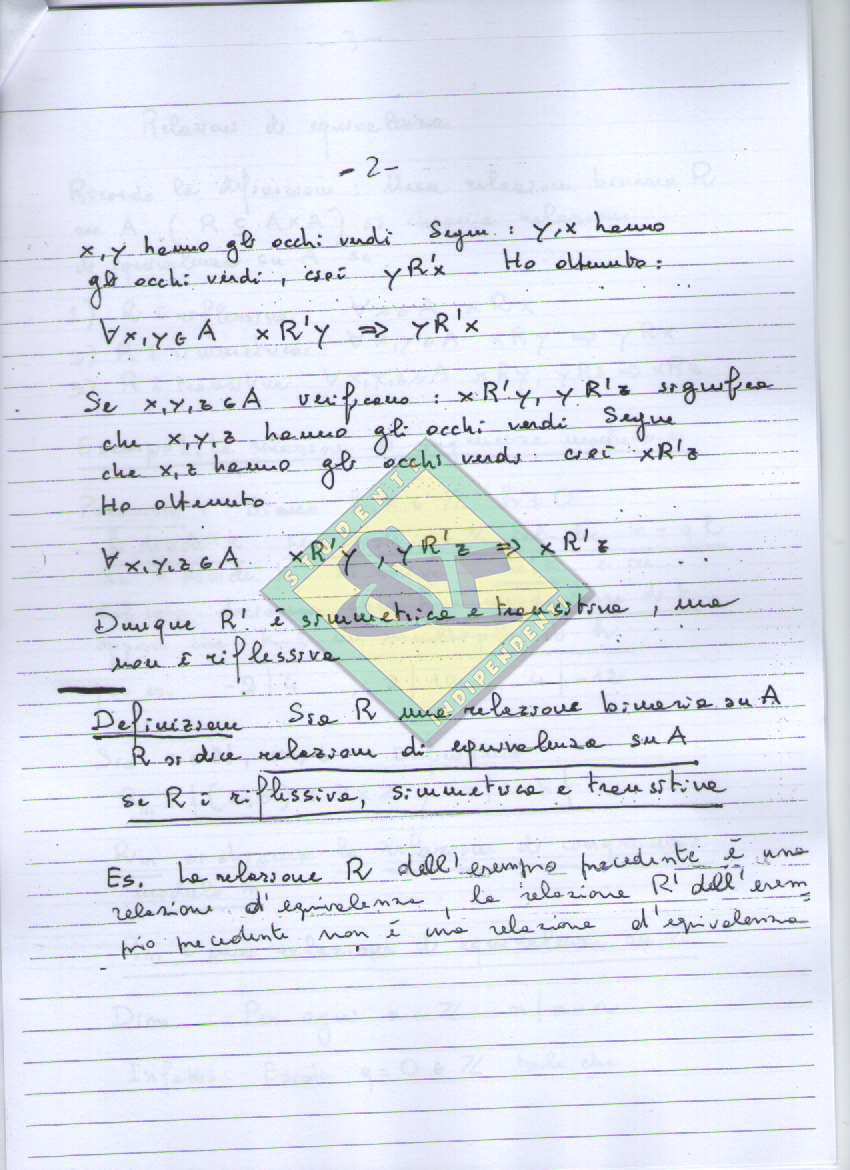 - 2 -
x, y hanno gli occhi verdi Segue : y, x hanno
gli occhi verdi, cioè y R'x Ho ottenuto :
∀ x, y ∈ A x R'y ⇒ y R'x
Se x, y, z ∈ A verificano : x R'y, y R'z significa
che x, y, z hanno gli occhi verdi Segue
che x, z hanno gli occhi verdi cioè x R'z
Ho ottenuto
∀ x, y, z ∈ A x R'y, y R'z ⇒ x R'z
Dunque R' è simmetrica e transitiva, ma
non è riflessiva
Definizione Sia R una relazione binaria su A
R si dice relazione di equivalenza su A
se R è riflessiva, simmetrica e transitiva
Es. La relazione R dell'esempio precedente è una
relazione d'equivalenza, la relazione R' dell'esem
pio precedente non è una relazione d'equivalenza
STUDENTI
INDIPENDENTI